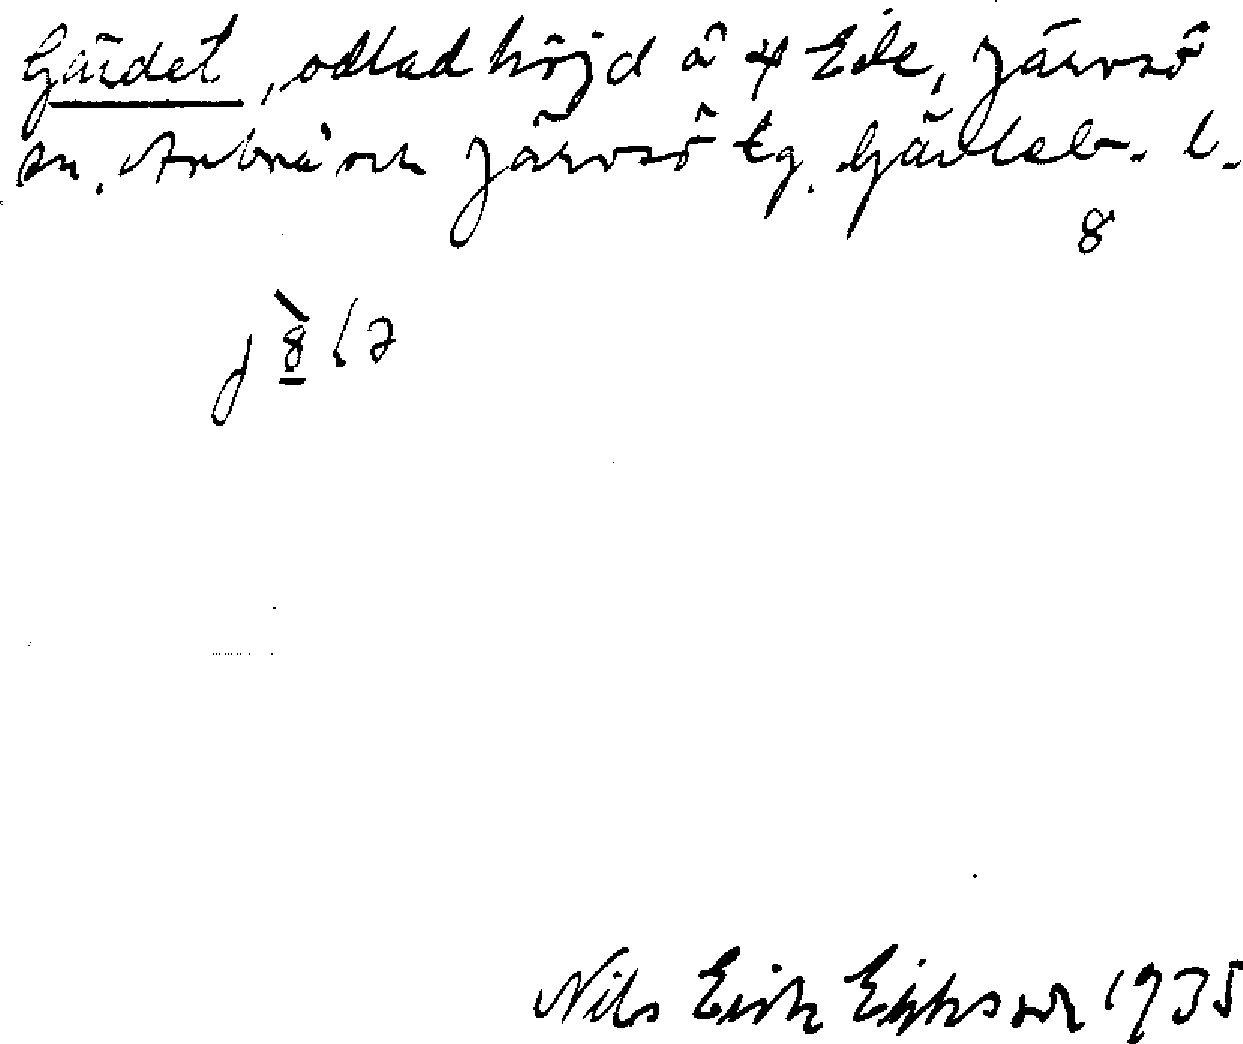 Gärdet, odlad höjd å 4 Ede, Järvsö
sn, Arbrå och Järvsö tg. Gävleb. l.
8
Nils Erik Eriksson 1935